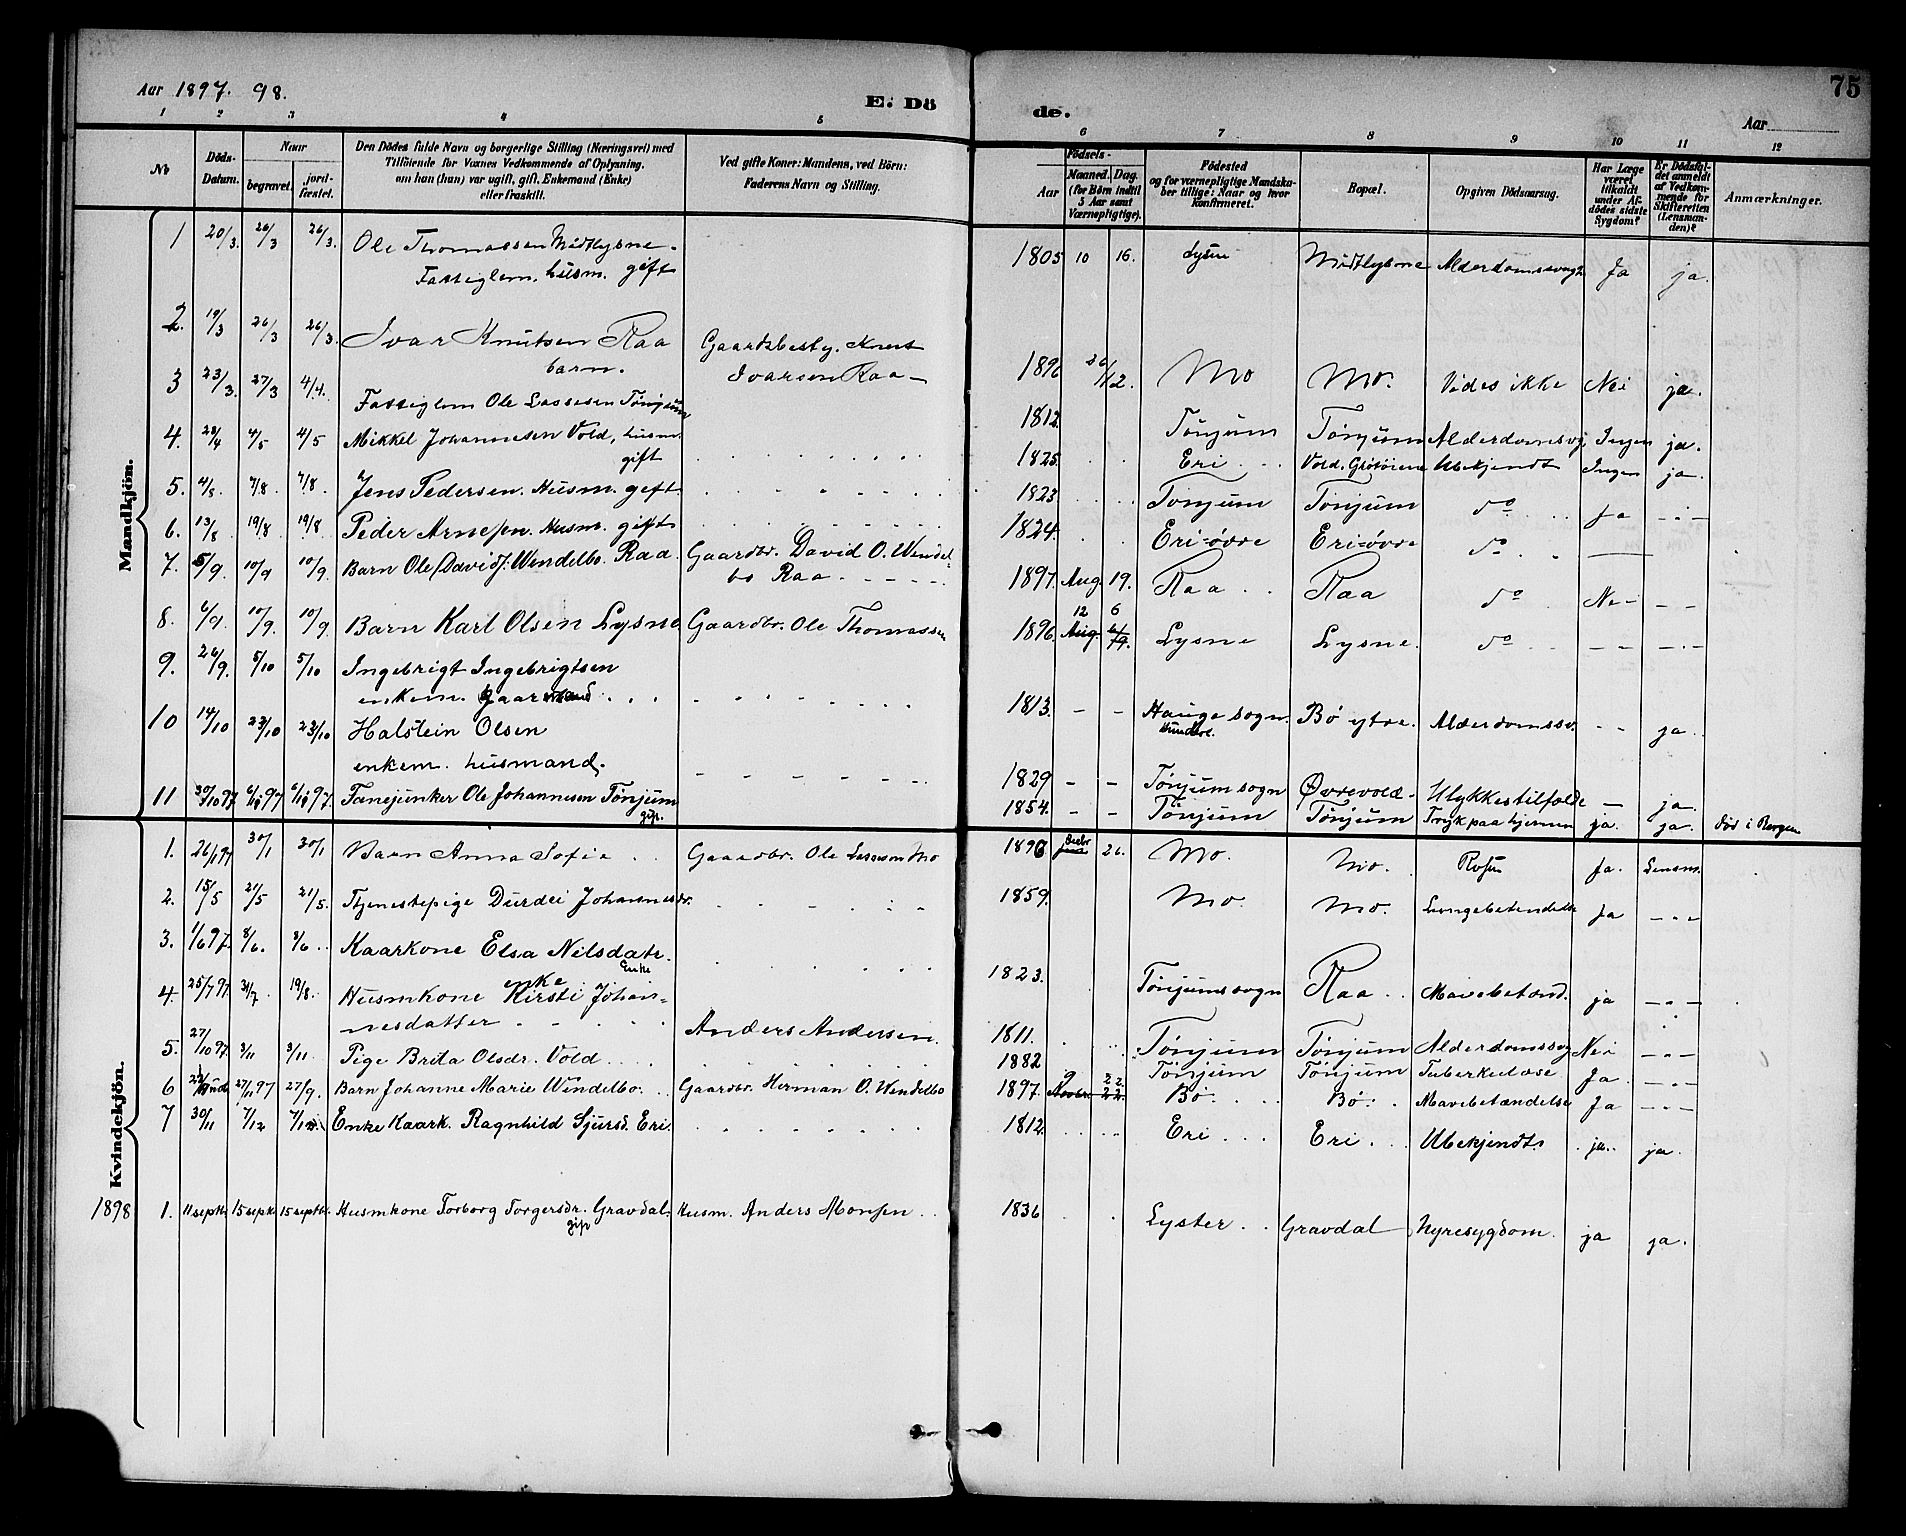 Aar 1897. 98.
E. Dö
de.
Aar
75
1 2 3 4 5 6 7 8 9 10 11 12
No
Döds-Datum.
Naar
begravet.
jordfæstet.
Den Dödes fulde Navn og borgerlige Stilling (Næringsvei) med
Tilföiende for Voxnes Vedkommende af Oplysning,
om han (hun) var ugift, gift, Enkemand (Enke)
eller fraskilt.
Ved gifte Koner: Mandens, ved Börn:
Faderens Navn og Stilling.
Födsels-
Aar
Maaned. Dag.
(for Börn indtil
5 Aar samt
Værnepligtige).
Födested
og for værnepligtige Mandska-
ber tillige: Naar og hvor
konfirmeret.
Bopæl.
Opgiven Dödsaarsag.
Har Læge
været
tilkaldt
under Af-
dödes sidste
Sygdom?
Er Dödsfal-
det anmeldt
af Vedkom-
mende for
Skifteretten
(Lensman-
den)?
Anmærkninger.
Mandkjön.
1 20/3. 26/3 26/3. Ole Thomassen Midtlysne. 1805 10 16. Lysne Midtlysne Alderdomssvagh Ja ja.
Fattiglem. husm. gift
2. 19/3 26/3 26/3. Ivar Knutsen Raa Gaardsbesty. Knut 1896 26/12. Mo Mo. Vides ikke Nei ja.
barn. Ivarsen Raa
3 23/3. 27/3 4/4. Fattiglem Ole Lassesen Tönjum 1812. Tönjum Tönjum Alderdomssv. Ingen ja.
4. 28/4 4/5 4/5 Mikkel Johannesen Vold, husm. 1825. Eri Vold. Ubekjendt Ingen ja.
gift
5. 4/8. 7/8. 7/8. Jens Pedersen. Husm. gift. 1823 Tönjum Tönjum do Ja - " -
6. 13/8 19/8 19/8 Peder Arnessen. Husm. gift 1824. Eri-övre Eri-övre do
7. 5/9. 10/9 10/9. Barn Ole (David) Wendelbo. Raa. Gaardbr. David O. Wendel- 1897. Aug 19. Raa Raa do Nei - -
bo Raa
8. 6/9. 10/9. 10/9 Barn Karl Olsen Lysne. Gaardbr. Ole Thomassen 1896. 12 6 Aug. Lysne Lysne. do - - - " -
9. 26/9. 5/10 5/10 Ingebrigt Ingebrigtsen 1813. - - Hauge sogn. Bö ytre. Alderdomssv. - - ja.
enkem. Gaardmand
10 14/10 23/10 23/10 Halstein Olsen 1829 - - Tönjum sogn Övrevold. Ulykkestilfælde - ja.
enkem. husmand.
11 30/10 97. 6/11 97 6/11 97. Fanejunker Ole Johannesen Tönjum 1854. - - Tönjum Tönjum Tryk paa hjernen ja. ja. död i Bergen
gift.
Kvindekjön.
1. 26/1 97 30/1 30/1 Barn Anna Sofie Gaardbr. Ole Lassesen Mo 1896 26. Mo. Mo. Rosen Ja. Lensm.
2. 15/5 21/5 21/5. Tjenestepige Durdei Johannesdr. 1859. Mo. Mo. Lungebetendelse Ja - " -
3. 1/6 97. 8/6. 8/6 Kaarkone Elsa Nilsdatr. 1823. Tönjumssogn Raa Mavebetænd. ja - " -
Enke
4. 25/7 97. 31/7. 19/8. Husmkone enke Kirsti Johan- 1811. Tönjum Tönjum Alderdomssvag Nei - " -
nesdatter Anders Andersen.
5. 27/10 97. 3/11 3/11. Pige Brita Olsdr. Vold 1882 Tönjum Tönjum Tuberkulose Ja - " -
6 27/11 97 27/9. Barn Johanne Marie Wendelbo. Gaardbr. Herman O. Wendelbo 1897. 9 22. Novbr. 22. Bö. Bö. Mavebetændelse Ja - " -
7 30/11 7/12 7/12. Enke Kaark. Ragnhild Sjursd. Eri. 1812. Eri Eri Ubekjendt. ja. ja.
1898 1. 11 septbr 15 septb 15 septbr. Husmkone Torborg Torgersdr. Gravdal. Husm. Anders Monsen 1836 Lyster Gravdal Nyresygdom. ja ja.
gift